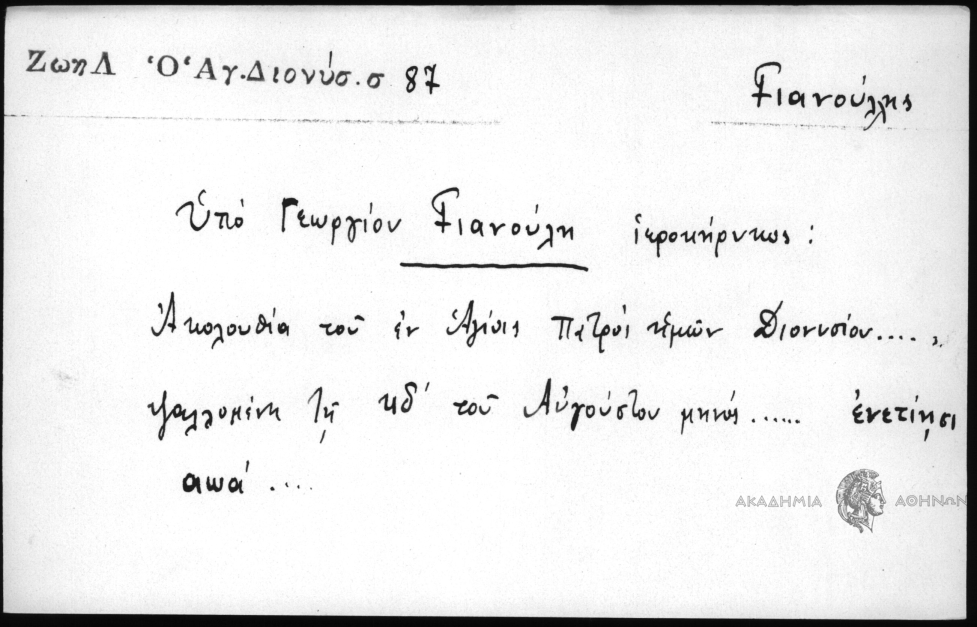 Ζωη Λ Ὁ Ἁγ. Διονύσ. σ 87
Γιανούλλης
Ὑπό Γεωργίου Γιανούλη ἱεροκήρυκος :
Ἀκολουθία τοῦ ἐν Ἁγίοις Πατρός ἡμῶν Διονυσίου.... ,
ψαλλομένη τῇ κδ΄ τοῦ Αὐγούστου μηνός ...... ἐνετίῃσι
αωά ....
ΑΚΑΔΗΜΙΑ ΑΘΗΝΩΝ